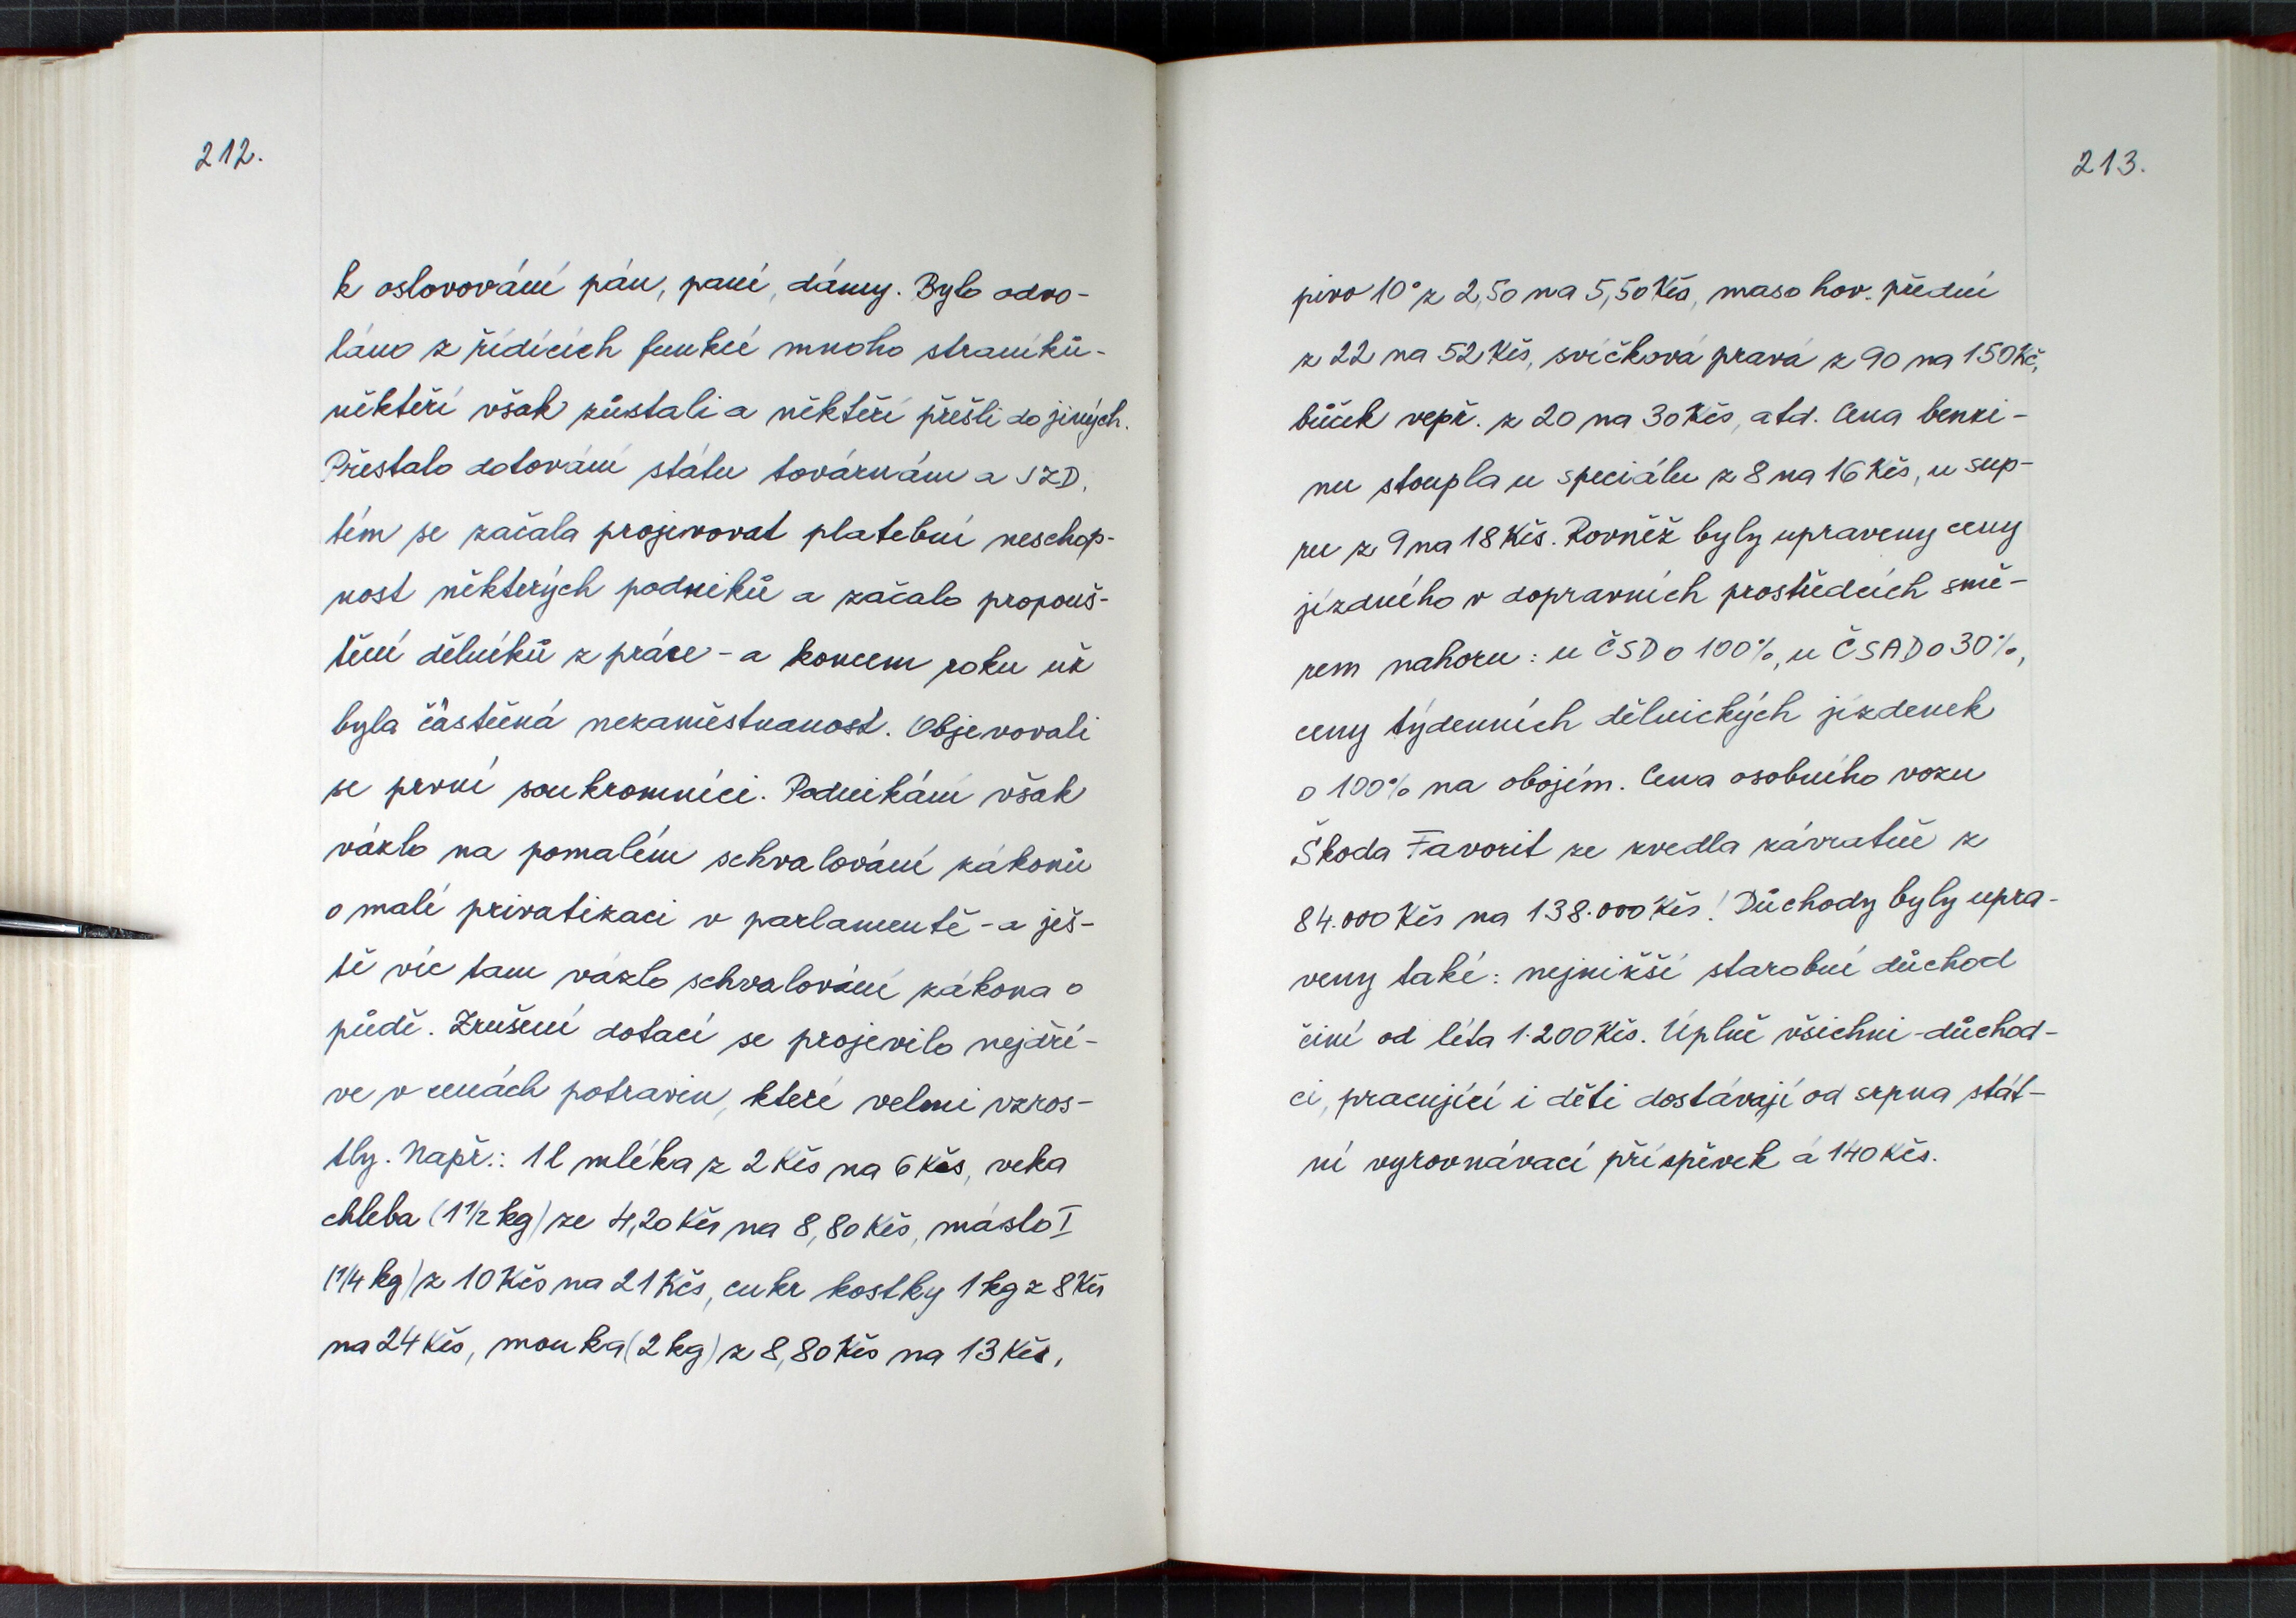 212.
k oslovování pán, paní, dámy. Bylo odvo-
láno z řídících funkcí mnoho straníků-
někteří však zůstali a někteří přešli do jiných.
Přestalo dotování státu továrnám a JZD,
tím se začala projevovat platební neschop-
nost některých podniků a začalo propouš-
tění dělníků z práce - a koncem roku už
byla částečná nezaměstnanost. Objevovali
se první soukromníci. Podnikání však
vázlo na pomalém schvalování zákonů
o malé privatizaci v parlamentě - a ješ-
tě víc tam vázlo schvalování zákona o
půdě. Zrušení dotací se projevilo nejdří-
ve v cenách potravin, které velmi vzros-
tly. Např.: 1 l mléka z 2 Kčs na 6 Kčs, veka
chleba (1 1/2 kg) ze 4,20 Kčs na 8,80 Kčs, máslo I
(1/4 kg) z 10 Kčs na 21 Kčs, cukr kostky 1 kg z 8 Kčs
na 24 Kčs, mouka (2 kg) z 8,80 Kčs na 13 Kčs,
213.
pivo 10° z 2,50 na 5,50 Kčs, maso hov. přední
z 22 na 52 Kčs, svíčková pravá z 90 na 150 Kč,
bůček vepř. z 20 na 30 Kčs, atd. Cena benzi-
nu stoupla u speciálu z 8 na 16 Kčs, u sup-
ru z 9 na 18 Kčs. Rovněž byly upraveny ceny
jízdného v dopravních prostředcích smě-
rem nahoru: u ČSD o 100%, u ČSAD o 30%,
ceny týdenních dělnických jízdenek
o 100% na obojím. Cena osobního vozu
Škoda Favorit se zvedla závratně z
84.000 Kčs na 138.000 Kčs! Důchody byly upra-
veny také: nejnižší starobní důchod
činí od léta 1.200 Kčs. Úplně všichni - důchod-
ci, pracující i děti dostávají od srpna stát-
ní vyrovnávací příspěvek á 140 Kčs.